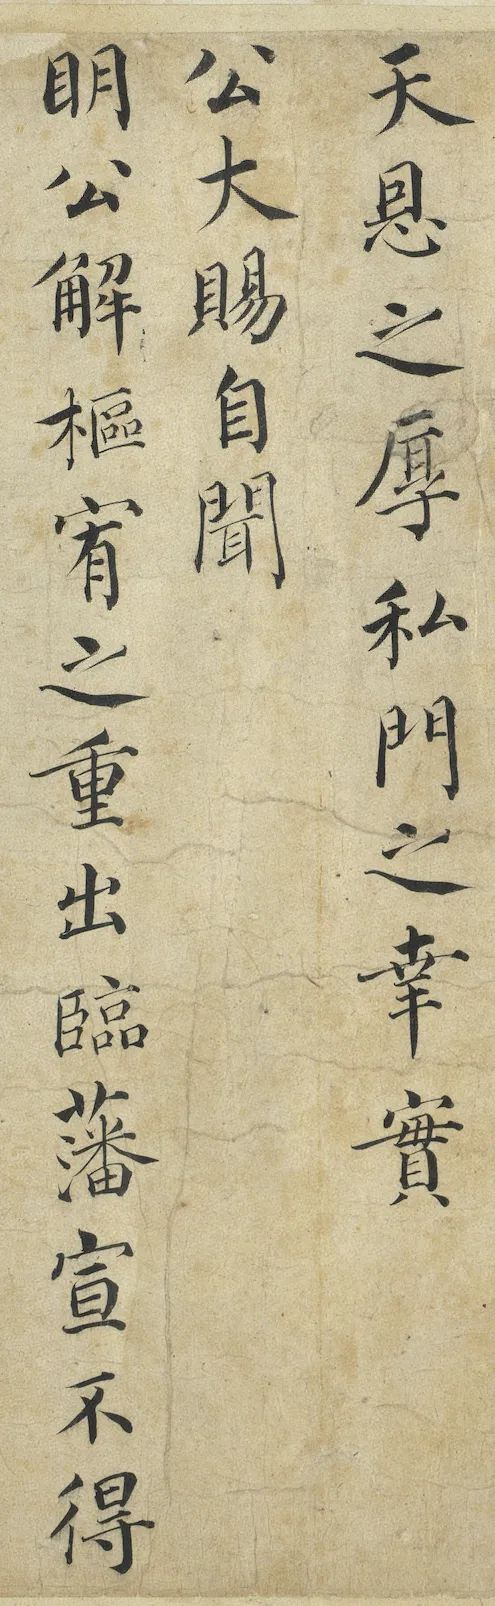 天恩之厚私門之幸實
公大賜自聞
明公解樞宥之重出臨藩宣不得